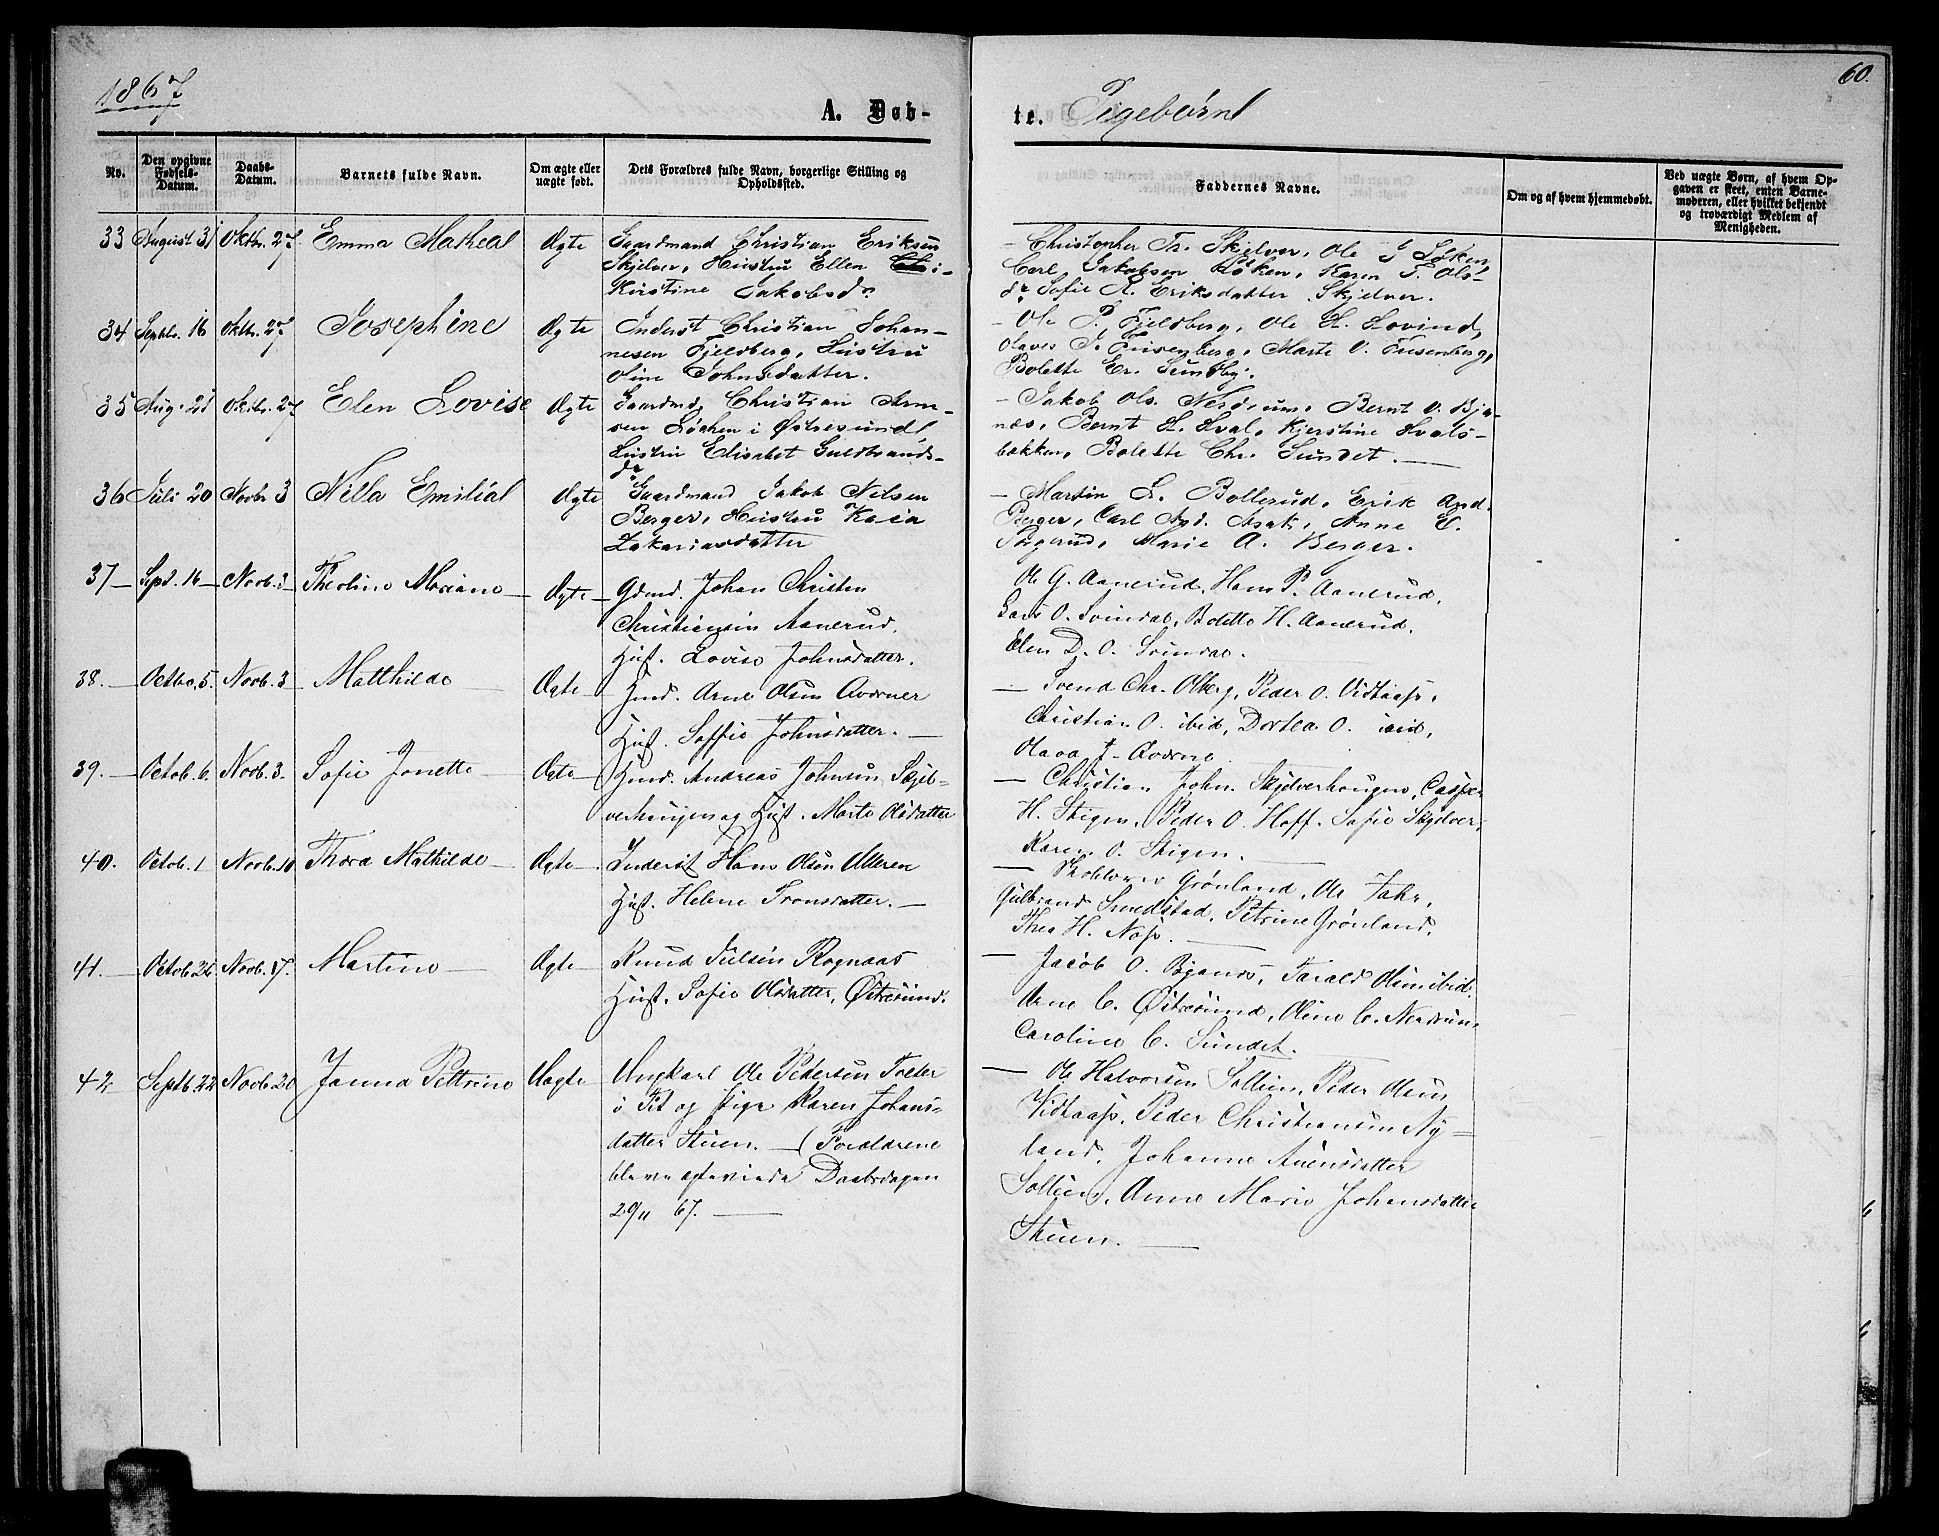 1867
60.
A. Døb-
te. Pigebørn
No.
Den opgivne Fødsels-Datum.
Daabs-Datum.
Barnets fulde Navn.
Om ægte eller uægte født.
Dets Forældres fulde Navn, borgerlige Stilling og Opholdssted.
Faddernes Navne.
Om og af hvem hjemmedøbt.
Ved uægte Børn, af hvem Opgaven er skeet, enten Barnemoderen, eller hvilket bekjendt og troværdigt Medlem af Menigheden.
33 August 31 Oktbr. 27 Emma Mathea Ægte Gaardmand Christian Eriksen
Skjelver, Hustru Ellen
Kirstine Jakobsdr.
Christopher Th. Skjelver, Ole G Løken
Carl Jakobsen Løken, Karen T. Ols-
dr Sofie A. Eriksdatter Skjelver.
34 Septbr. 16 Oktbr. 27 Josephine Ægte Inderst Christian Johan-
nesen Fjeldberg, Hustru
Oline Johnsdatter.
Ole P. Fjeldberg, Ole H. Hovind,
Olaves J. Friisenberg, Marte O. Friisenberg,
Bolette Er. Sundby.
35 Aug. 21 Oktbr. 27 Elen Lovise Ægte Gaardmd. Christian Arne-
sen Løchen i Østresund
Hustru Elisabet Guldbrands-
dr
Jakob Ols. Nerdrum, Bernt O. Bjø-
næs, Bernt H. Hval, Kjerstine Hvals-
bakken, Bolette Chr. Sundet.
36 Juli 20 Novbr 3 Nilla Emilia Ægte Gaardmand Jakob Nilsen
Berger, Hustru Kaia
Zakariasdatter
Martin L. Bollerud, Erik And.
Berger, Carl And. Asak, Anne E.
Marie A. Berger.
37 Sept. 16 Novb. 3 Theoline Mariane Ægte Gdmd. Johan Christen
Christiansen Aanerud,
Hust. Lovise Johnsdatter.
Ole G. Aanerud, Hans P. Aanerud,
Lars O. Svindal, Bolette H. Aanerud.
Elen D. O. Svindal.
38. Octbo. 5. Novb. 3 Matthilde Ægte Hmd. Arne Olsen Ovdrner
Hust. Soffie Johnsdatter.
Svend Chr. Olberg, Peder O. Vidtaass,
Christian O. ibid, Dortea O. ibid,
Olava J.
39. Octob. 6. Novb. 3. Sofie Jonette Ægte Hmd. Andreas Johnsen Skjel-
verhaugen og Hust. Marte Olsdatter
Christian John. Skjelverhaugen, Casper
H. Stigen, Peder O. Hoff. Sofie Skjelver,
Karen O. Stigen.
40. Octob. 1 Novb. 10 Thora Mathilde Ægte Inderst Hans Olsen Olleren
Hust. Helene Tronsdatter.
Grönland, Ole Jahr,
Gulbrand Smedstad, Petrine Grönland,
Thea H. Næss.
41. Octob. 26 Novb. 17. Martine Ægte Knud Julsen Rognaas
Hust. Sofie Olsdatter, Østresund.
Jacob O. Bjønæs, Tarald Olsen ibid.
Arne C. Østresund, Oline C. Nerdrum
Caroline C. Sundet.
42 Septb. 22 Novb. 20 Janna Pettrine Uægte Ungkarl Ole Pedersen Toeter
i Fet og Pige Karen Johans-
datter Stuen. (Forældrene
bleve ægteviede Daabsdagen
20/11 67.
Ole Halvorsen Sollien, Peder Olsen
Vidtaass, Peder Christiansen Ny-
land, Johanne Auensdatter
Sollien, Anne Marie Johansdatter
Stuen.